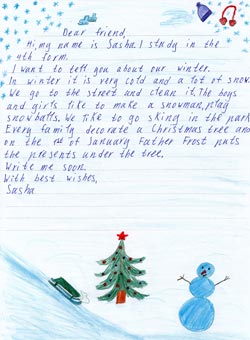 Dear friend,
Hi, my name is Sasha. I study in the
4th form.
I want to tell you about our winter.
In winter it is very cold and a lot of snow.
We go to the street and clean it. The boys
and girls like to make a snowman, play
snowballs. We like to go skiing in the park.
Every family decorate a Christmas tree and
on the 1st of January Father Frost puts
the presents under the tree.
Write me soon.
With best wishes,
Sasha